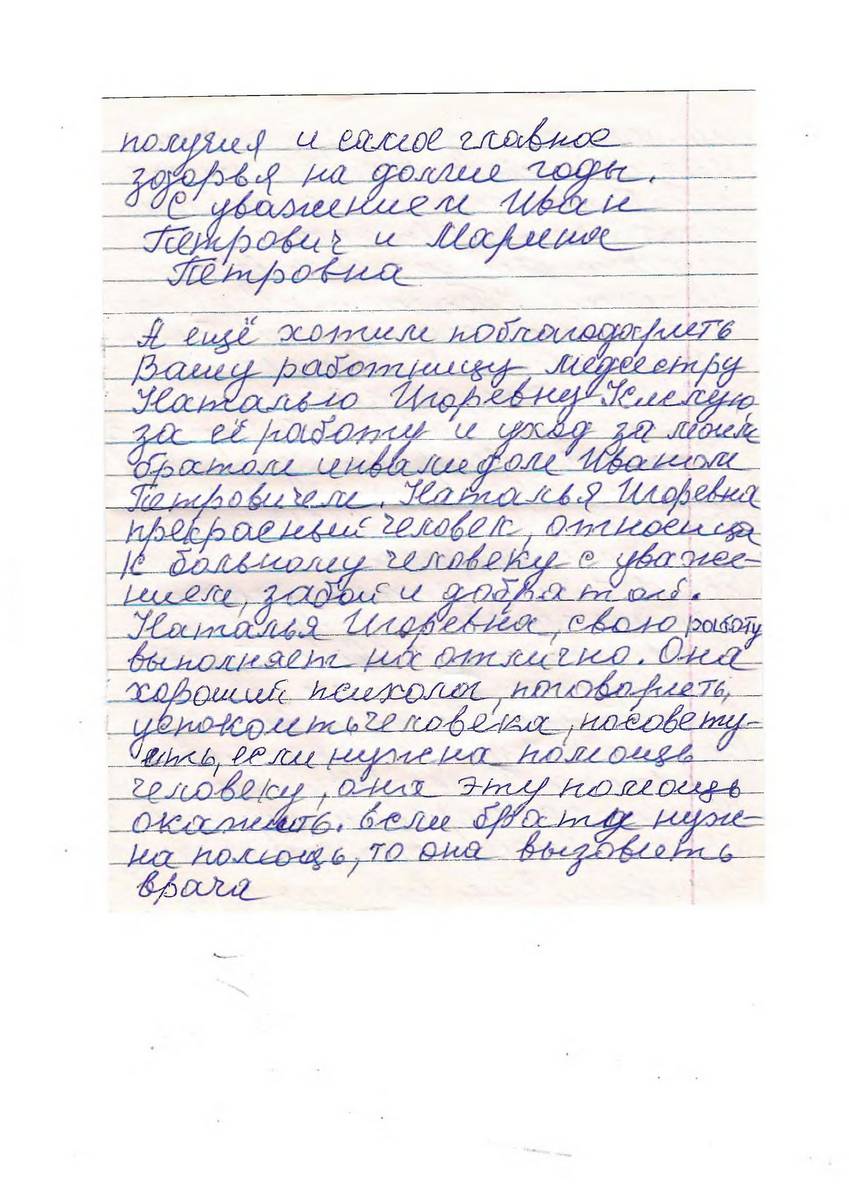 получия и самое главное
здоровья на долгие годы.
С уважением Иван
Петрович и Марина
Петровна
А ещё хотим поблагодарить
Вашу работницу медсестру
Наталью Игоревну
за её работу и уход за моим
братом инвалидом Иваном
Петровичем. Наталья Игоревна
прекрасный человек, относица
к больному человеку с уваже-
нием, забой и добратой.
Наталья Игоревна, свою работу
выполняет на отлично. Она
хороший психолог, поговорить,
успокоить человека, посовету-
ить, если нужна помощь
человеку, она эту помощь
окажить. Если брату нуж-
на помощь, то она вызовить
врача